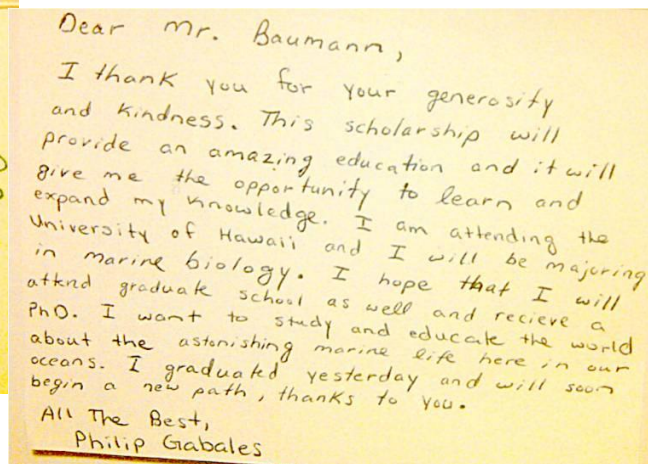 Dear Mr. Baumann,
I thank you for your generosity
and kindness. This scholarship will
provide an amazing education and it will
give me the opportunity to learn and
expand my knowledge. I am attending the
University of Hawaii and I will be majoring
in marine biology. I hope that I will
attend graduate school as well and recieve a
PhD. I want to study and educate the world
about the astonishing marine life here in our
oceans. I graduated yesterday and will soon
begin a new path, thanks to you.
All The Best,
Philip Gabales